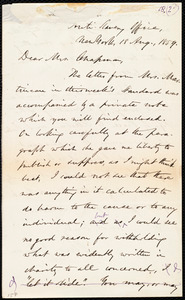 Anti-Slavery Office,
New York, 18 Aug., 1859.
Dear Mrs. Chapman,
The letter from Mrs. Mar-
tineau in this week's Standard was
accompanied by a private note
which you will find enclosed.
On looking carefully at the para-
graph which she gave me liberty to
publish or suppress, as I might think
best, I could not see that there
was anything in it calculated to
do harm to the cause or to any
individual; and as I could see
no good reason for withholding
what was evidently written in
charity to all concerned, I
"let it slide." You may, or may